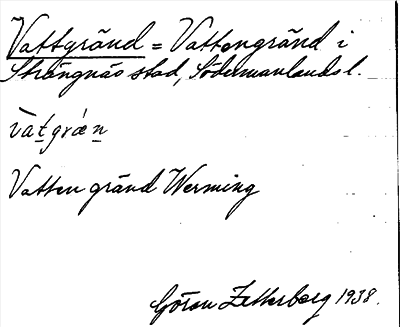 Vattgränd = Vattengränd i
Strängnäs stad, Södermanlands l.
và̄t̲grǽn̲
Vatten gränd Werming
Göran Zetterberg 1938.